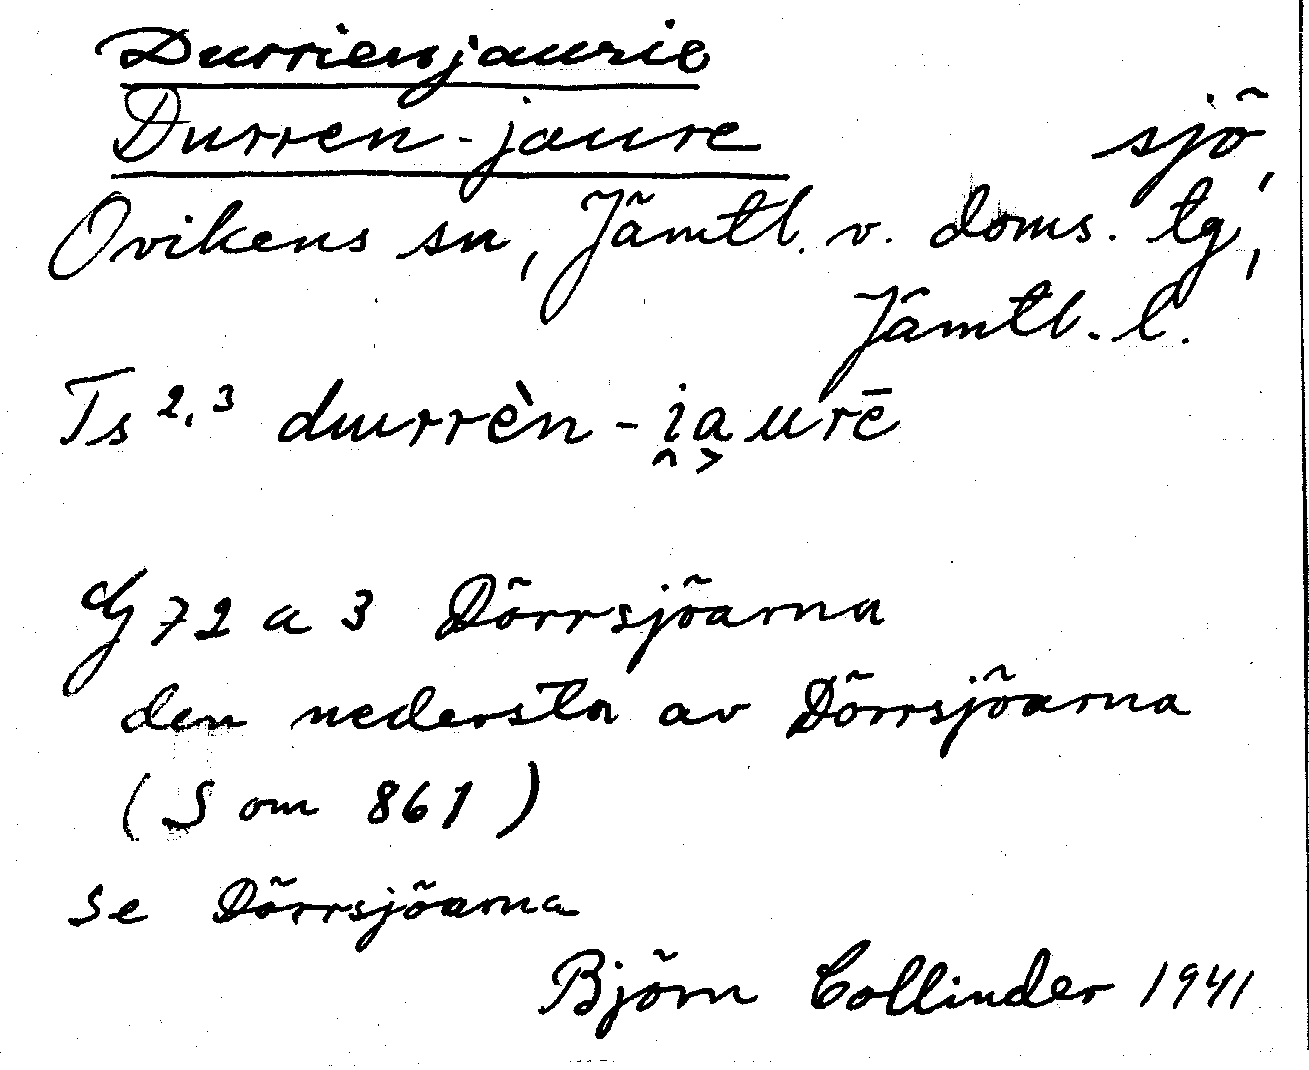 Durrienjaurie
Durren-jaure sjö,
Ovikens sn, Jämtl. v. doms. tg,
Jämtl. l.
Ts 2,3 duurrèn-i̭a˲urē
G 72 a 3 Dörrsjöarna
den nedersta av Dörrsjöarna
(S om 861)
se Dörrsjöarna
Björn Collinder 1941